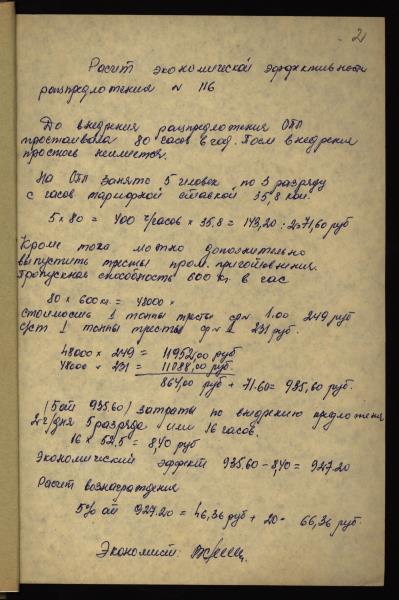 2
Расчет экономической эффективности
рацпредложения № 116
До внедрения рацпредложения ОТП
простаивала 80 часов в год. После внедрения
простоев не имеется.
На ОТП занято 5 человек по 3 разряду
с часов тарифной ставкой 35,8 коп.
5 × 80 = 400 ч/часов × 35,8 = 143,20 : 2 = 71,60 руб
Кроме того можно дополнительно
выпустить тресты пром. приготовления.
Пропускная способность 600 кг в час
80 × 600 кг. = 48000
стоимость 1 тонны тресты 1.00 249 руб
с/ст 1 тонны тресты 231 руб.
48000 × 249 = 11952,00 руб
48000 × 231 = 11088,00 руб.
864,00 руб + 71.60 = 935,60 руб.
935.60) затраты по внедрению предложения
2 ч/дня 5 разряда или 16 часов.
16 × 52,5 = 8,40 руб
Экономический эффект 935.60 - 8,40 = 927.20
Расчет вознаграждения
5% от 927.20 = 46,36 руб + 20 = 66,36 руб.
Экономист: